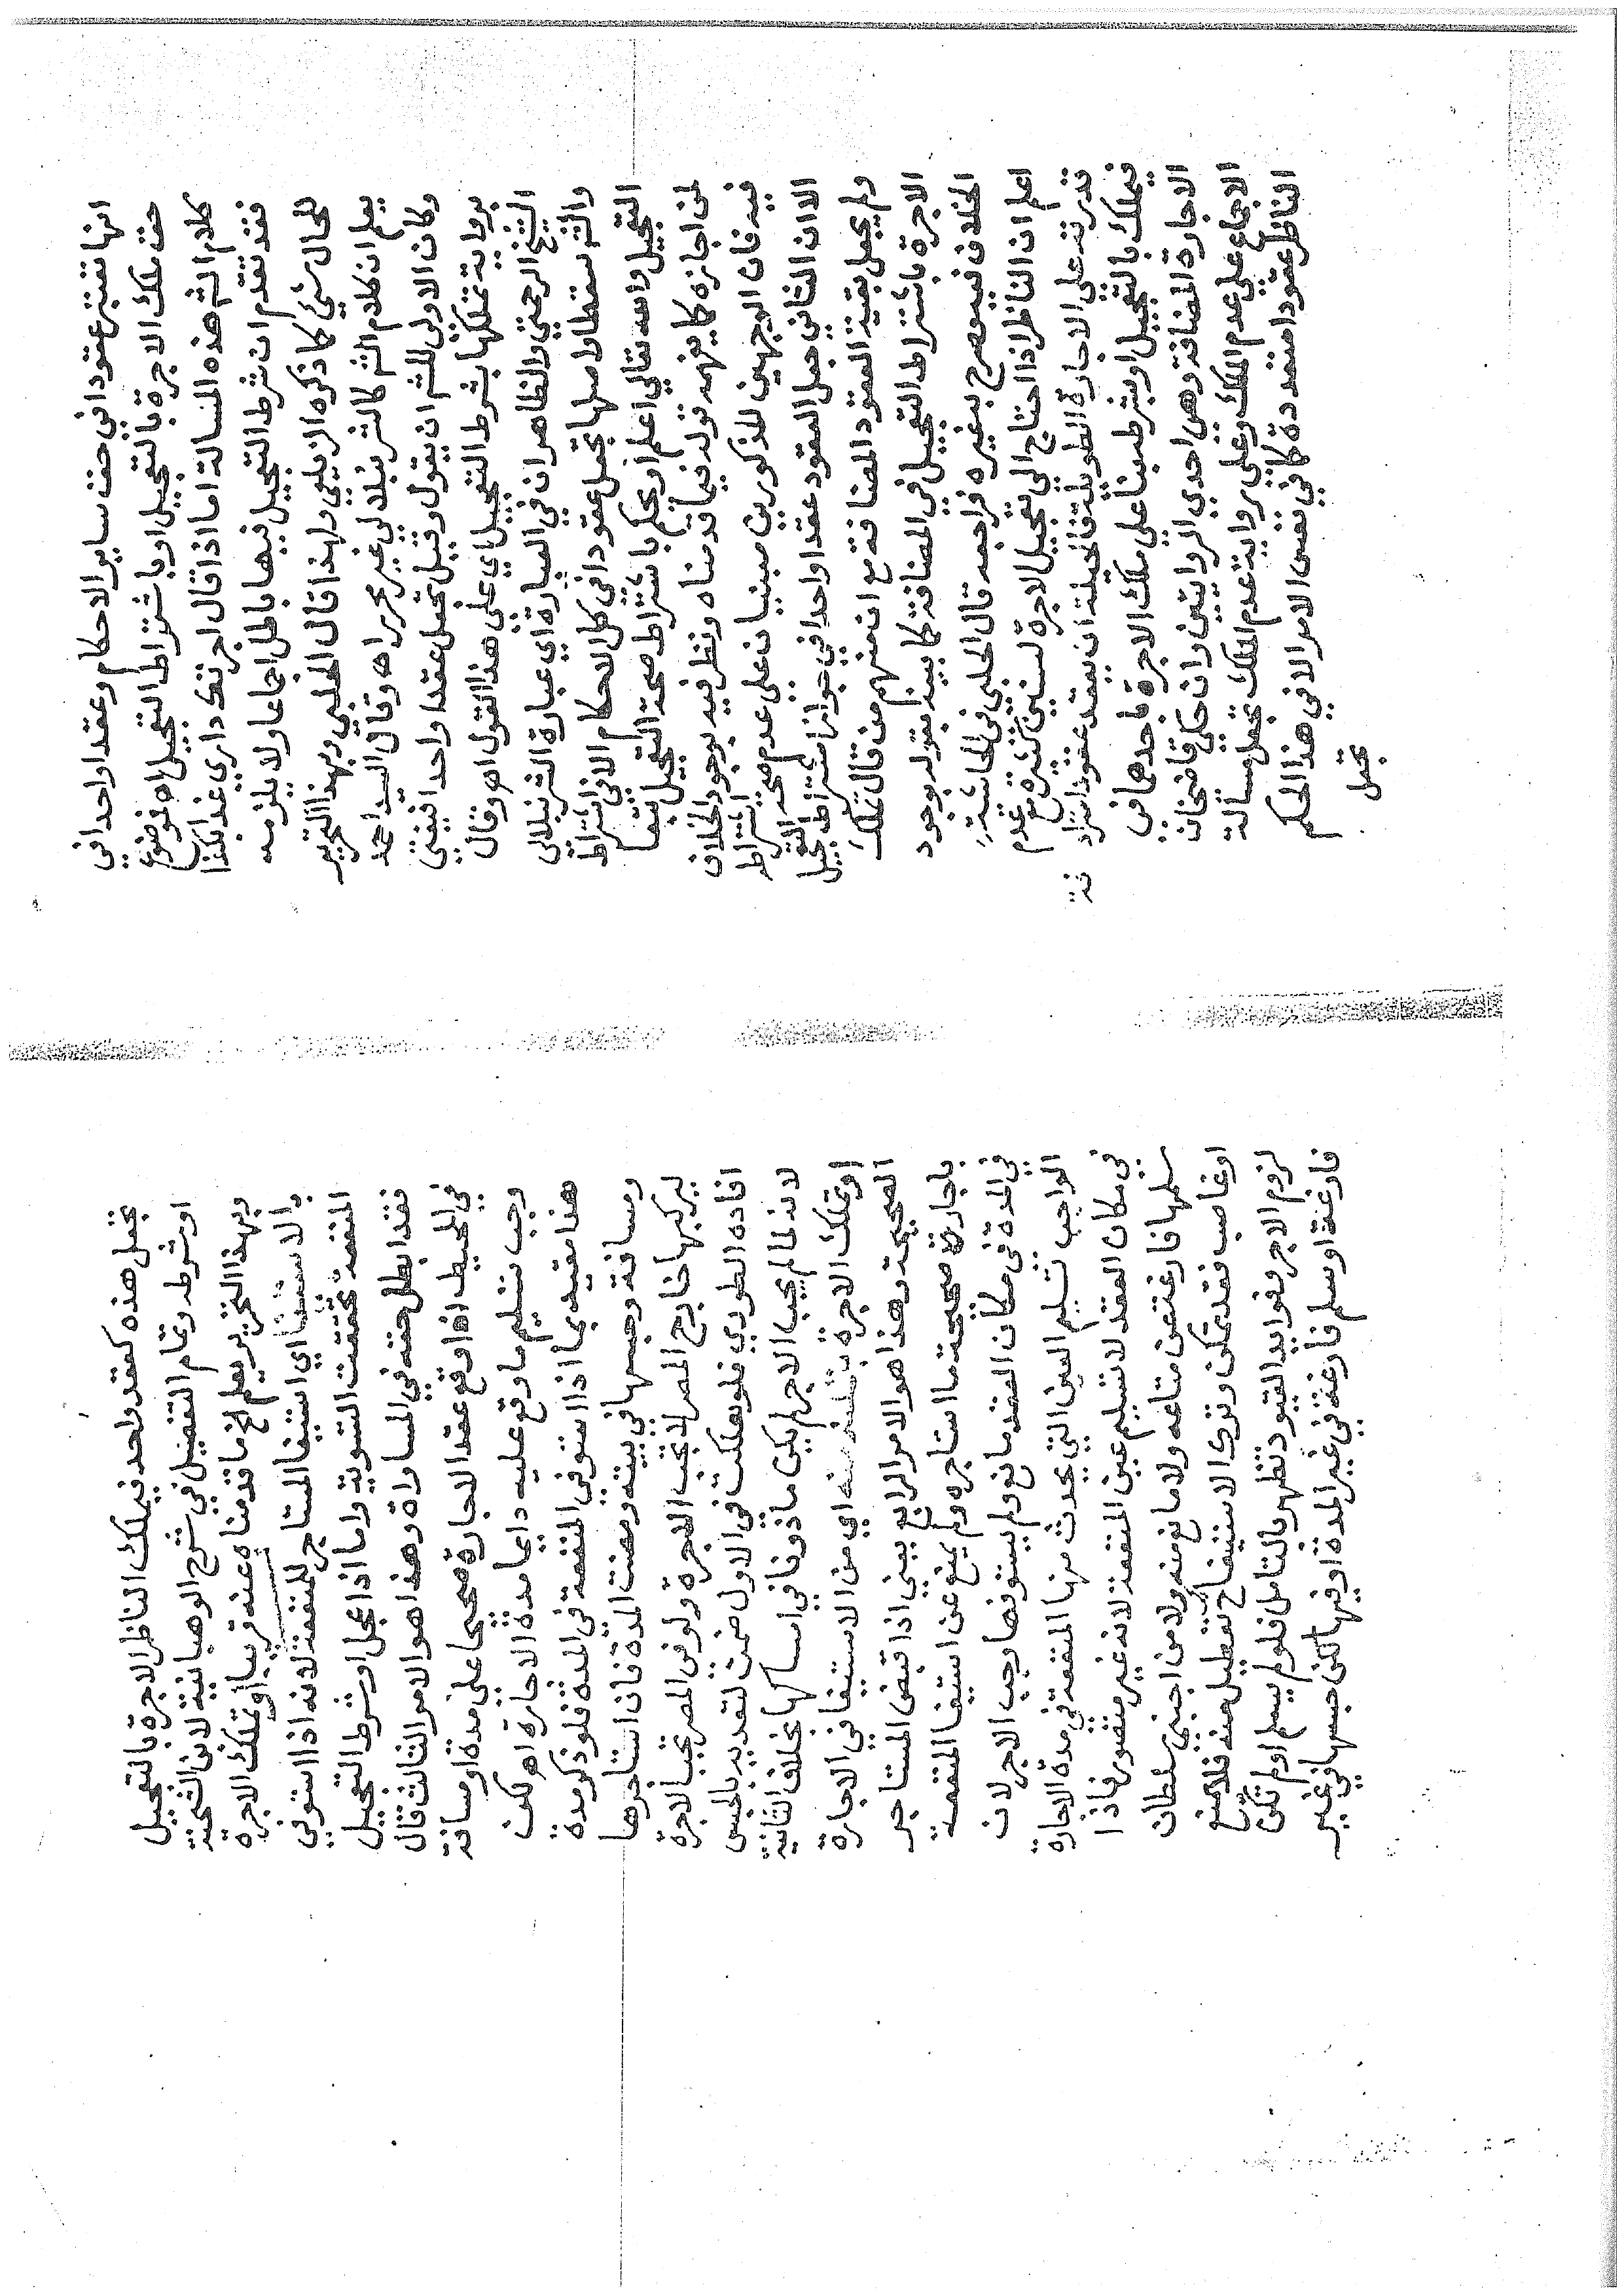 انها تعتبر عقودا في حق ساير الاحكام وعقدا واحدا في
حق ملك الاجرة بالتعجيل او باشتراط التعجيل اه فموضوع
كلام الشم هذه المسالة اما اذا قال اجرتك داري غدا بكذا
فقد تقدم ان شرط التعجيل فيها باطل اجماعا ولا يلزمه
للحال شي كما ذكره الزيلعي ولهذا قال الحلبي وبهذا التحرير
يعلم ان كلام الشم كالشرنبلالي غير محرر اه وقال السيد احمد
وكان الاولى للشم ان يقول وقيل تجعل عقدا واحدا فيفتي
برواية تملكها بشرط التعجيل اي على هذا القول اه وقال
الشيخ الرحمتي والظاهر ان في العبارة اي عبارة الشرنبلالي
والشم سقطا واصلها تجعل عقودا في كل الاحكام الا في اشتراط
التعجيل والله تعالى اعلم او يحكم باشتراط صحة التعجيل تبعا
لمن اجازه كما يفهمه قوله فيما قدمناه ونظر فيه بوجود الخلاف
فيه فان الوجهين المذكورين مبنيان على عدم صحة اشتراط
الا ان الثاني جعل العقود عقدا واحدا في جواز اشتراط التعجيل
ولم يجعل بقية العقود المضافة مع ان منهم من قال تملك
الاجرة باشتراط التعجيل في المضافة كما بينا بقوله بوجود
الخلاف فيه وصرح به غيره فراجعه قال الحلبي في الحاشية
اعلم ان الناظر اذا احتاج الى تعجيل الاجرة لسنين كثيرة مع عدم
قدرته على الاجارة الطويلة فالحيلة ان يعقد عقودا مترادفة
فيملك بالتعجيل او بشرطه بناء على ملك الاجرة باحدهما في
الاجارة المضافة وهي احدى الروايتين وان حكى قاضخان
الاجماع على عدم الملك وعلى رواية عدم الملك تجعل مسالة
الناظر عقودا متعددة كما في نفس الامر الا في هذا الحكم
تجعل
تجعل هذه كعقد واحد فيملك الناظر الاجرة بالتعجيل
او شرطه وتمام التفصيل في شرح الوهبانية لابن الشحنة
وبهذا التحرير يعلم مع ما قدمناه عنه قريبا او تملك الاجرة
بالاستيفا اي استيفا المستاجر للمنفعة لانه اذا استوفى
المنفعة تحققت التسوية واما اذا عجل او شرط التعجيل
فقد ابطل حقه في المساواة وهذا هو الامر الثالث قال
في المحيط اذا وقع عقد الاجارة صحيحا على مدة او مسافة
وجب تسليم ما وقع عليه دايما مدة الاجارة اه لكن
هذا مقيد بما اذا استوفى المنفعة في المدة فلو ذكر مدة
ومسافة وحبسها في بيته ومضت المدة فان استاجرها
ليركبها خارج المصر لا تجب الاجرة ولو في المصر تجب الاجرة
افاده الطوري فلو هلكت في الاول ضمن لتعديه بالحبس
لانه لما لم يجب الاجر لم يكن ماذونا في امساكها بخلاف الثانية
او تملك الاجرة بتمكنه منه اي من الاستيفا في الاجارة
الصحيحة وهذا هو الامر الرابع يعني اذا قبض المستاجر
باجارة صحيحة ما استاجره ولم يمنع عن استيفا المنفعة
في المدة في مكان العقد مانع ولم يستوفها وجب الاجر لان
الواجب تسليم العين التي يحدث منها المنفعة في مدة الاجارة
في مكان العقد لا تسليم عين المنفعة لانه غير متصور فاذا
سلمها فارغة عن متاعه ولا مانع منه ولا من اجنبي سلطان
او غاصب فقد تمكن وترك الانتفاع تعطيل منه فلا يمنع
لزوم الاجر وفوايد القيود تظهر بالتامل فلو لم يسلم او لم تكن
فارغة او سلم فارغة في غير المدة او فيها لكن حبسها في غير